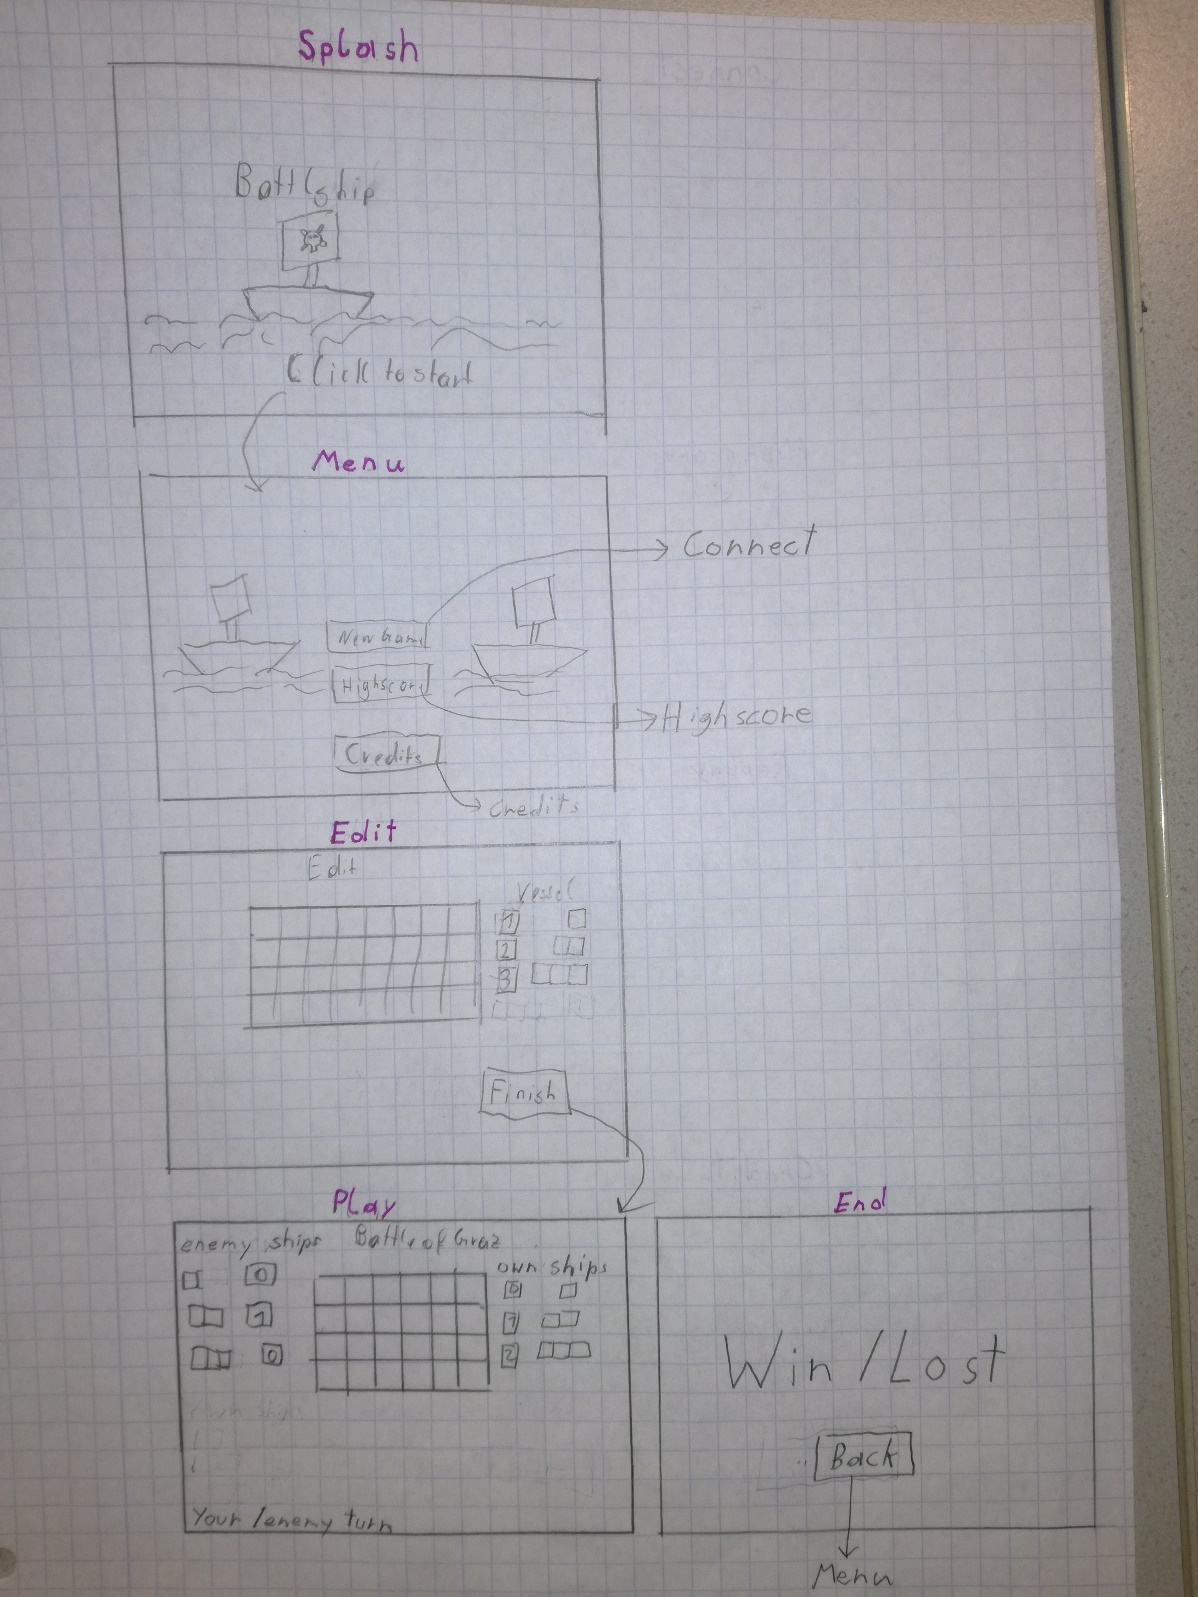 Splash
Battleship
Click to start
Menu
Connect
New Game
Highscore
Highscore
Credits
Credits
Edit
Edit
Vessel
1
2
3
Finish
Play
enemy ships
Battle of Graz
own ships
0
1
0
0
1
2
own ships
Your/enemy turn
End
Win/Lost
Back
Menu